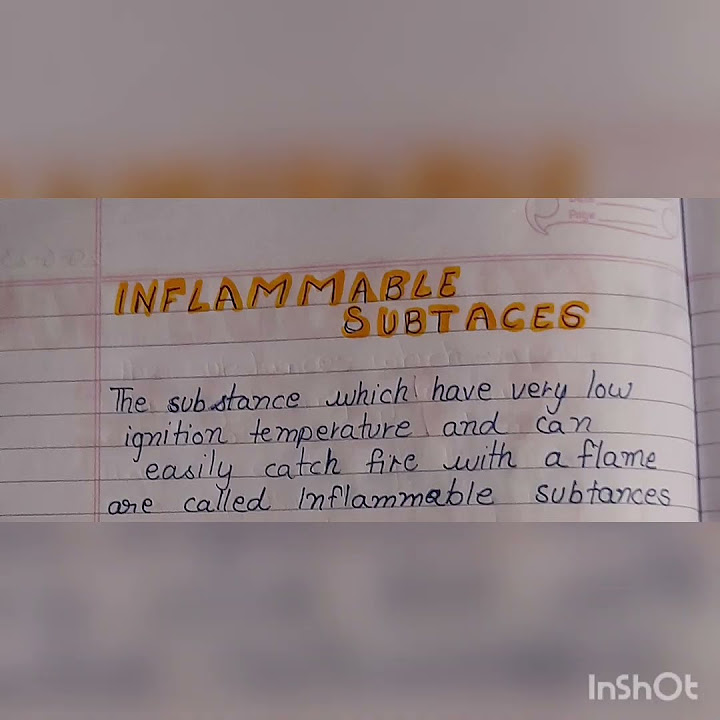 Page
INFLAMMABLE
SUBTACES
The substance which have very low
ignition temperature and can
easily catch fire with a flame
are called Inflammable subtances
InShOt